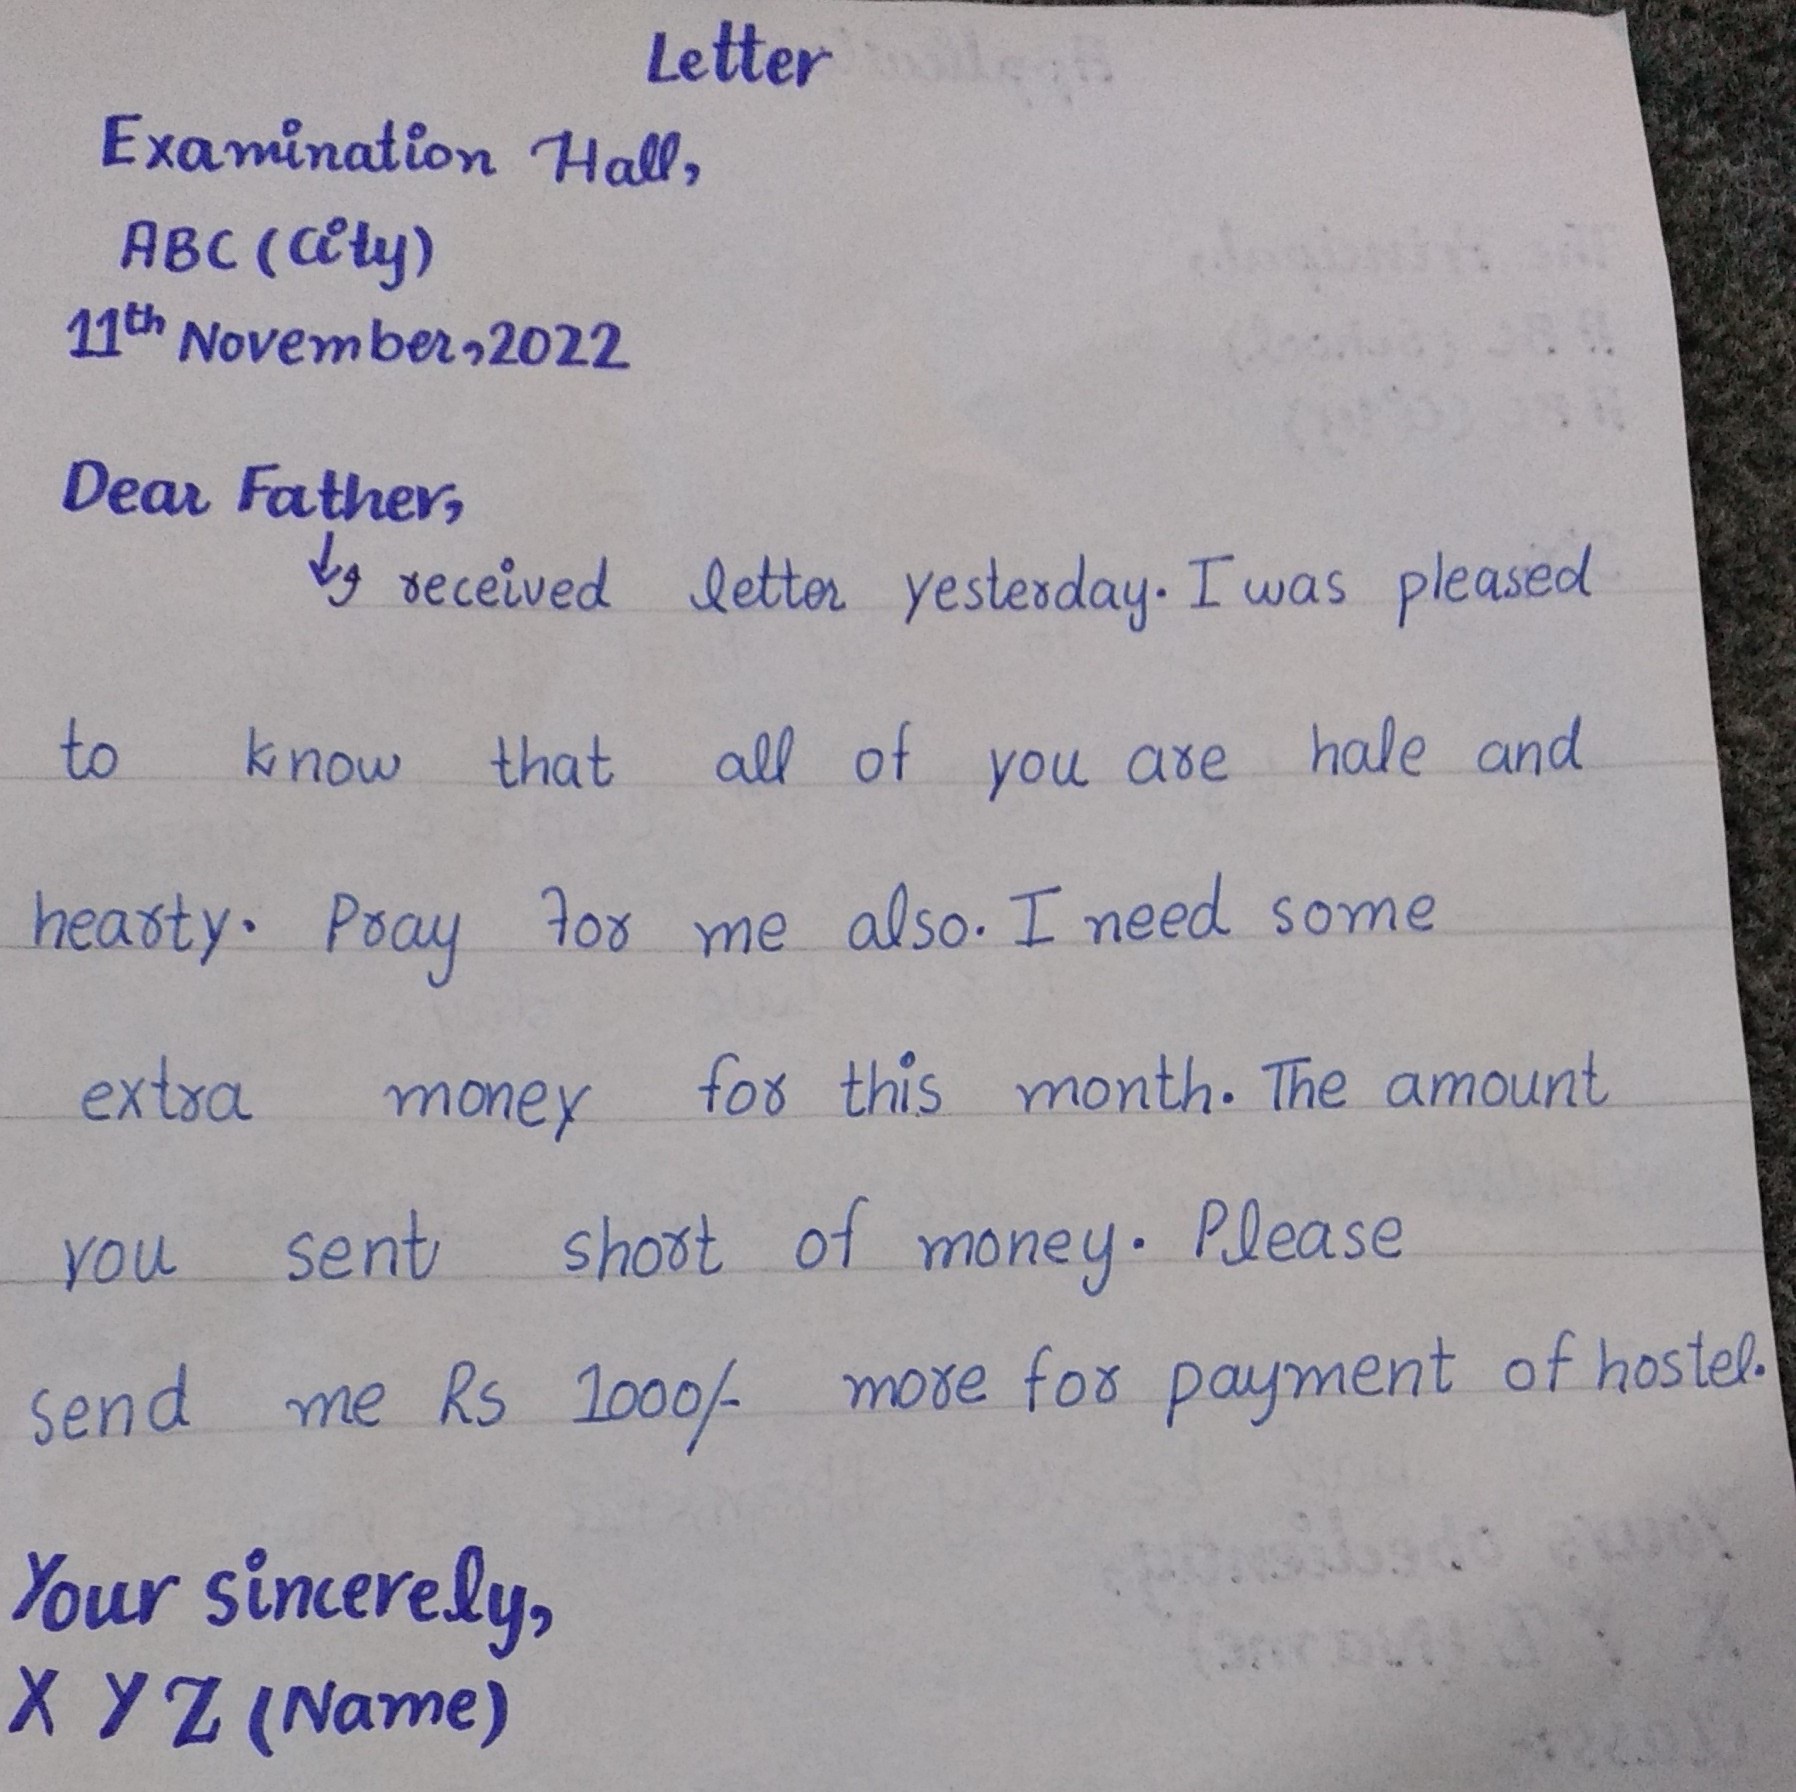 Letter
Examination Hall,
ABC (City)
11th November, 2022
Dear Father,
I received letter yesterday. I was pleased
to know that all of you are hale and
hearty. Pray for me also. I need some
extra money for this month. The amount
you sent short of money. Please
send me Rs 1000/- more for payment of hostel.
Your sincerely,
X Y Z (Name)